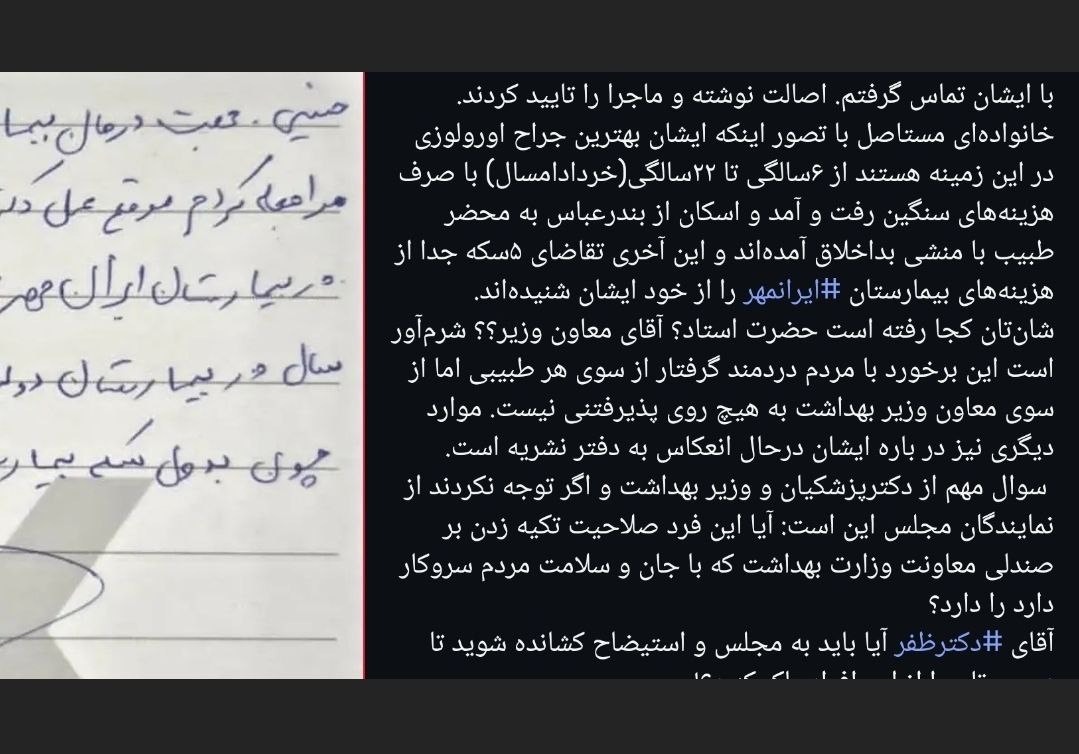 با ایشان تماس گرفتم. اصالت نوشته و ماجرا را تایید کردند.
خانواده‌ای مستاصل با تصور اینکه ایشان بهترین جراح اورولوزی
در این زمینه هستند از ۶سالگی تا ۲۲سالگی(خردادامسال) با صرف
هزینه‌های سنگین رفت و آمد و اسکان از بندرعباس به محضر
طبیب با منشی بداخلاق آمده‌اند و این آخری تقاضای ۵سکه جدا از
هزینه‌های بیمارستان #ایرانمهر را از خود ایشان شنیده‌اند.
شان‌تان کجا رفته است حضرت استاد؟ آقای معاون وزیر؟؟ شرم‌آور
است این برخورد با مردم دردمند گرفتار از سوی هر طبیبی اما از
سوی معاون وزیر بهداشت به هیچ روی پذیرفتنی نیست. موارد
دیگری نیز در باره ایشان درحال انعکاس به دفتر نشریه است.
سوال مهم از دکترپزشکیان و وزیر بهداشت و اگر توجه نکردند از
نمایندگان مجلس این است: آیا این فرد صلاحیت تکیه زدن بر
صندلی معاونت وزارت بهداشت که با جان و سلامت مردم سروکار
دارد را دارد؟
آقای #دکترظفر آیا باید به مجلس و استیضاح کشانده شوید تا
جهت درمان
مراجعه کردم موقع عمل
در بیمارستان ایران مهر
سال در بیمارستان
چون بدون سکه